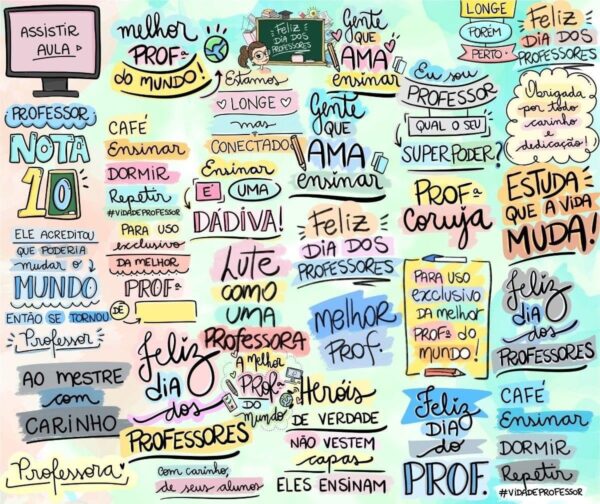 ASSISTIR
AULA
melhor
PROFª
do MUNDO!
FELIZ
DIA DOS
PROFESSORES
Gente
QUE
AMA
ensinar
LONGE
PORÉM
PERTO
FELIZ
DIA DOS
PROFESSORES
PROFESSOR
NOTA
10
CAFÉ
Ensinar
DORMIR
Repetir
#VIDADEPROFESSOR
Estamos
LONGE
mas
CONECTADO
Gente
QUE
AMA
ensinar
Eu sou
PROFESSOR
QUAL O SEU
SUPERPODER?
Obrigada
por todo
carinho e
dedicação!
ELE ACREDITOU
QUE PODERIA
mudar o
MUNDO
ENTÃO SE TORNOU
Professor
PARA USO
exclusivo
DA MELHOR
PROFª
DE
Ensinar
É UMA
DÁDIVA!
Feliz
DIA DOS
PROFESSORES
PROFª
coruja
ESTUDA
QUE A VIDA
MUDA!
Lute
COMO
UMA
PROFESSORA
MELHOR
PROF.
PARA USO
exclusivo
DA melhor
PROFª do
MUNDO!
Feliz
DIA
dos
PROFESSORES
AO MESTRE
com
CARINHO
Feliz
DIA
dos
PROFESSORES
A MELHOR
PROFª
DO
MUNDO
Heróis
DE VERDADE
NÃO VESTEM
capas
ELES ENSINAM
Feliz
DIA
DO
PROF.
CAFÉ
Ensinar
DORMIR
Repetir
#VIDADEPROFESSOR
Professora
Com carinho,
de seus alunos